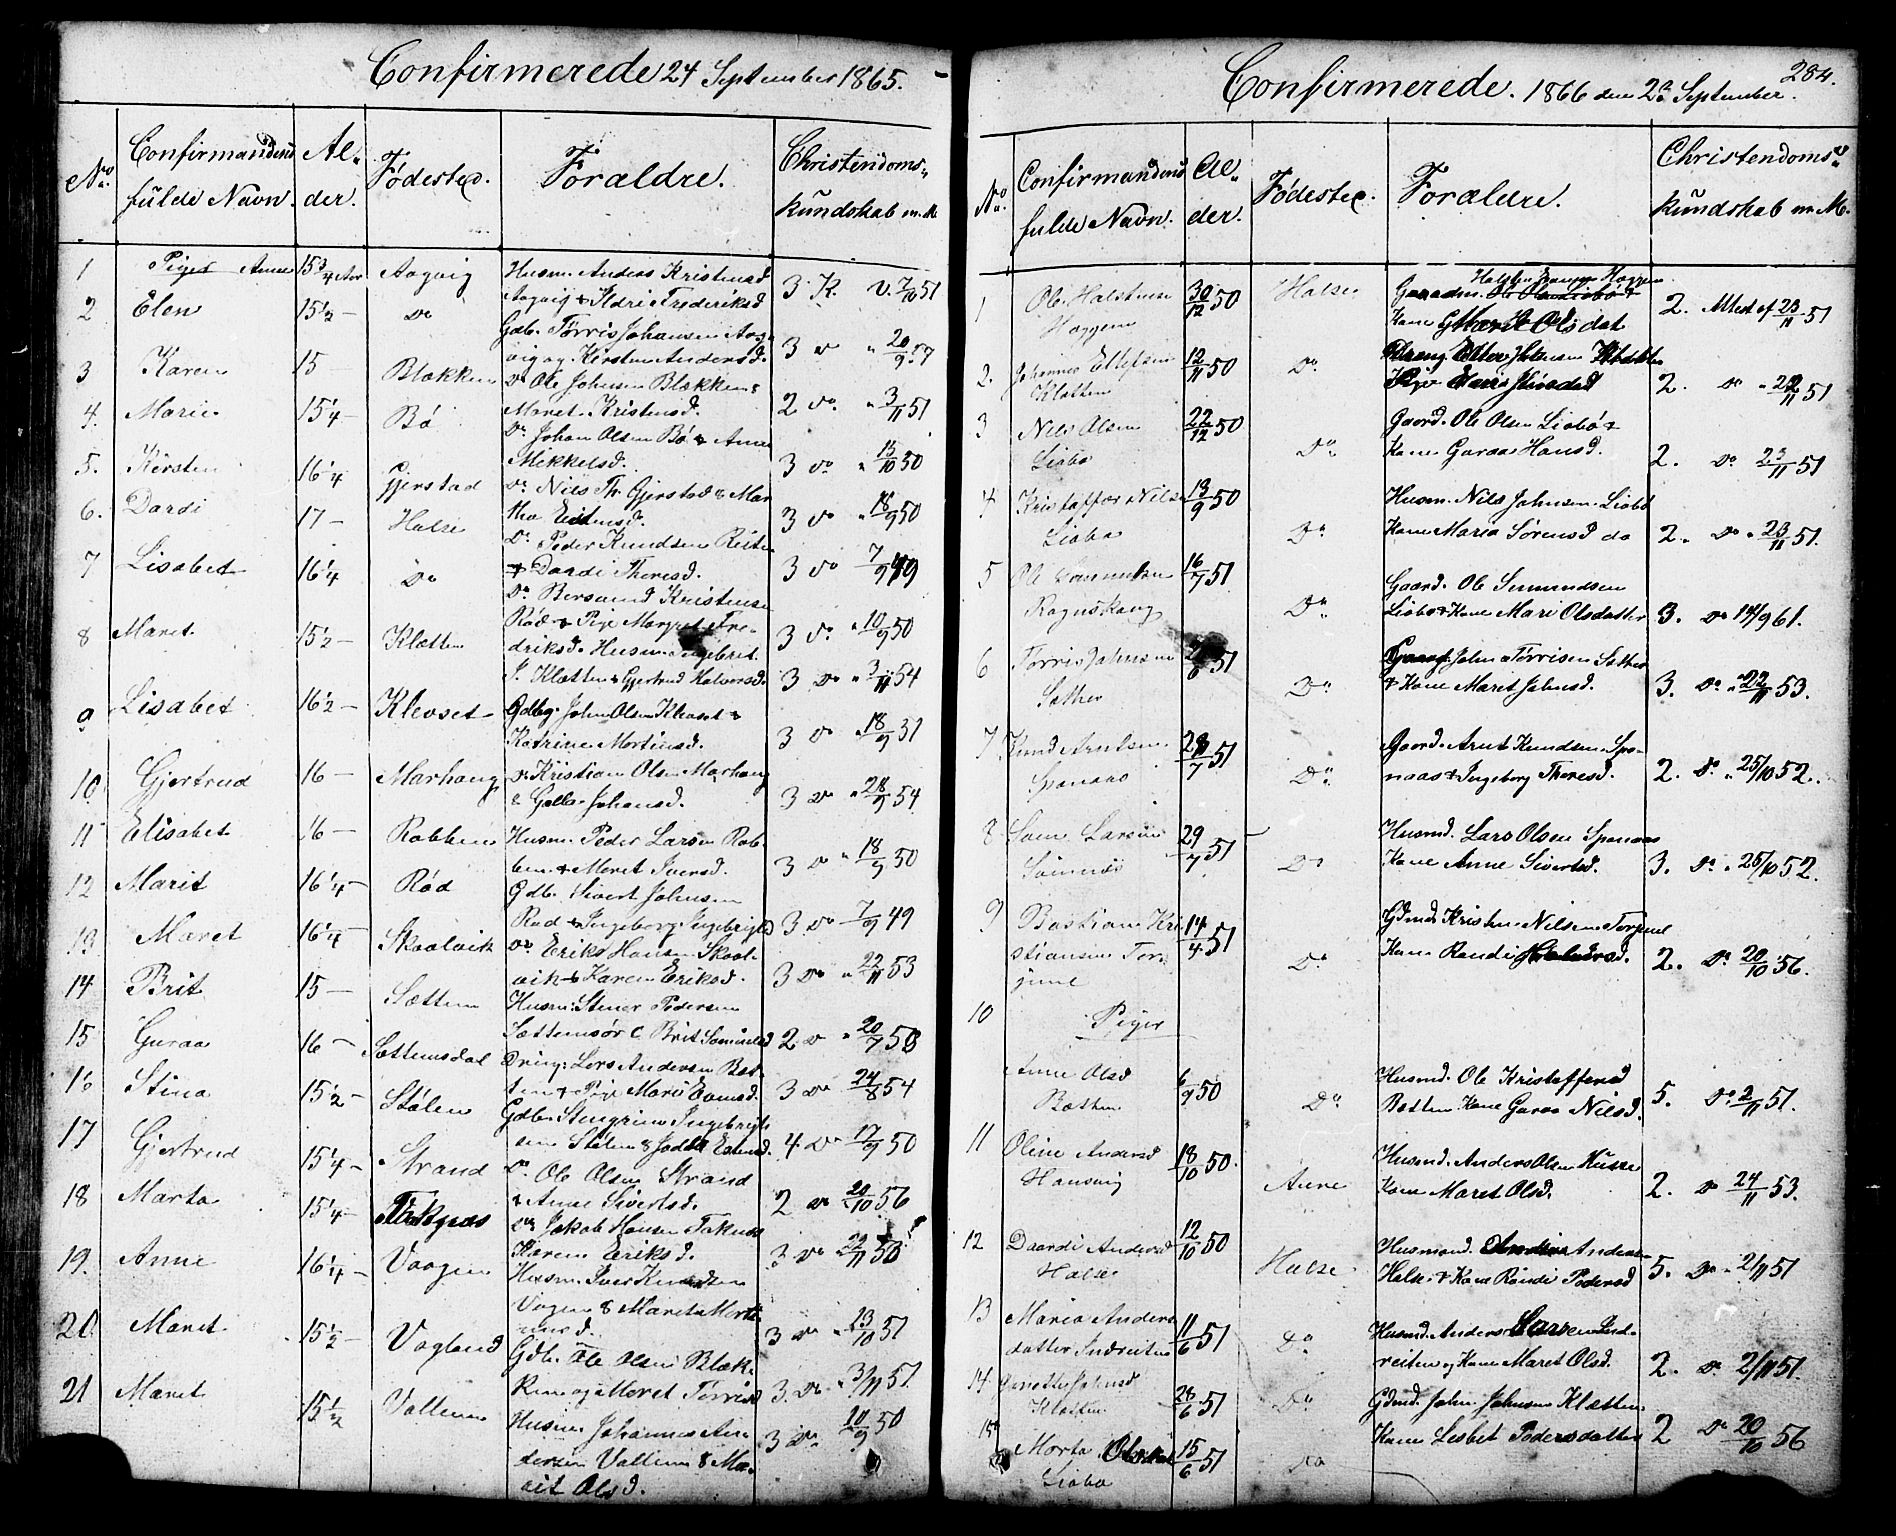 Confirmerede 24 September 1865.
No. Confirmandens fulde Navn. Al- der. Fødested. Forældre. Christendoms- kundskab m. M.
1 Piger Anne 15 3/4 Aar Aagvig Husm. Anders Kristensd
Aagvig & Ildri Frederiksd 3 K. V. 7/10 51
2 Elen 15 1/2 - Do Gdb. Tørris Johansen Aag-
vig og Kirsten Andersd. 3 Do " 20/9
3 Karen 15 Blækken Do Ole Johnsen Blækken &
Maret Kristensd. 2 Do " 3/11 51
4. Marie 15 1/4 - Bø Do Johan Olsen Bø & Anne
Mikkelsd. 3 Do " 15/10 50
5. Kirsten 16 1/4 Gjerstad Do Nils Th. Gjerstad & Mar
tha 3 Do " 18/9 50
6. Dardi 17 - Halse Do Peder Knudsen Reiten
& Dardi Theresd. 3 Do 7/9 49
7 Lisabet 16 1/4 Do Do Bersvend Kristensen
Rød & Pige Margret Fre-
driksd. 3 Do " 10/9 50
8 Maret 15 1/2 - Klætten Husm. Ingebret
J. Klætten & Gjertrud Halvorsd. 3 Do " 3/11 54
9 Lisabet 16 1/2 - Klevset - Gdbg. John Olsen Klevset &
Katrine Mortensd. 3 Do " 18/9 51
10 Gjertrud 16 - Marhaug Do Kristian Olsen Marhaug
& Johansd. 3 Do " 28/9 54
11 Elisabet 16 - Rabben Husm. Peder Larsen Rab-
ben & Meret Iversd. 3 Do " 18/9 50
12 Marit 16 1/4 - Rød Gdb. Sivert Johnsen
Rød & Ingeborg Ingebrigtsd 3 Do 7/9 49
13 Maret 16 1/4 - Skaalvik Do Erik Hansen Skaal-
vik & Karen Eriksd. 3 Do " 22/11 53
14 Brit 15 - Sættem Husm: Stener Pedersen
Sættemsør & Brit 2 Do " 20/7
15 Guraa 16 - Sættemsdal Dreng: Lars Andersen Bæt-
ten & Pige Mari Evensd. 3 Do 24/8 54
16 Stina 15 1/2 - Stølen Gdb. Stengrim Ingebrigt
sen Stølen & 4. Do 17/9 50
17 Gjertrud 15 1/4 - Strand Do Ole Olsen Strand
& Anne Sivertsd. 2 Do 20/10 56
18 Marta 15 1/4 - Taknæs Do Jakob Hansen Taknæs
Karen Eriksd. 3 Do
19. Anne 16 1/4 - Vaagen Husm. Iver Knudsen
Vagen & Maret Mort-
ensd. 3 Do 13/10 51
20. Maret 15 1/2 - Vagland Gdb. Ole Olsen Blæk-
ken og Meret Tørrisd 3 Do " 3/11 51.
21 Maret 15 1/2 Vattum Husm. Johannes An-
dersen Vattum & Ma-
rit Olsd. 3 Do 10/9 50
Confirmerede. 1866 den 23 September. 284.
No. Confirmandens fulde Navn. Al- der. Fødested. Forældre. Christendoms- kundskab m. M.
1 Ole Halstensen
Haggem 30/12 50 Halse Gaardm. Halsten Haggem
Kone Marit Olsdat 2. Attest af 23/11 51
2. Johannes Ellefsen
Klætten 12/11 50 Do Dreng Ellev Johnsen Klætten
Pige 2. Do " 22/11 51
3 Nils Olsen
Liabø 22/12 50 Do Gaard. Ole Olsen Liabø &
Kone Guraa Hansd. 2. Do 23/11 51
4 Kristoffer Nilsen
Liabø 13/9 50 Do Husm. Nils Johnsen Liabø
Kone Maria Sørensd do 2. Do " 23/11 51.
5 Ole
Ragnskaug 16/7 51 Do Gaard. Ole Simundsen
Liabø & Kone Mari Olsdatter 3. Do 14/9 61.
6 Tørris Johnsen
Sæther 51 Do Gaard. John Tørrisen Sæther
& Kone Maret Johnsd. 3. Do " 22/11 53.
7 Knud Arntsen
Spanaas 28/7 51 Do Gaard. Arnt Knudsen Spa-
naas & Ingeborg Theresd. 2. Do " 25/10 52.
8 Larsen
29/7 51 Do Husmd. Lars Olsen Spanaas
Kone Anne Sivertsd. 3. Do " 25/10 52.
9 Bastian Kri
stiansen Tor
june 14/4 51 Do Gdmd. Kristen Nilsen Torjune
Kone Randi 2. Do 20/10 56.
10 Piger
Anne Olsd
Bætten 6/9 50 Do Husmd. Ole Kristoffersd
Bætten Kone Guraa Nilsd. 5. Do 2/11 51.
11 Oline Andersd
Hansvig 18/10 50. Aure Husmd. Anders Olsen
Kone Maret Olsd. 2. Do 24/11 53.
12 Daardi Andersd
Halse 12/10 50 Halse Husmand. Anders Andersen
Halse & Kone Randi Pedersd 5. Do " 2/11 51
13 Maria Anders
datter Indreiten 11/6 51 Do Husmd. Anders Larsen Ind-
reiten og Kone Maret Olsd. 2. Do 2/11 51.
14 Johnsd
Klætten 28/6 51 Do Gdmd. John Johnsen Klætten
Kone Lesbet Pedersdatter 2 Do 20/10 56
15 Marta Olsdat
Liabø 15/6 51 Do